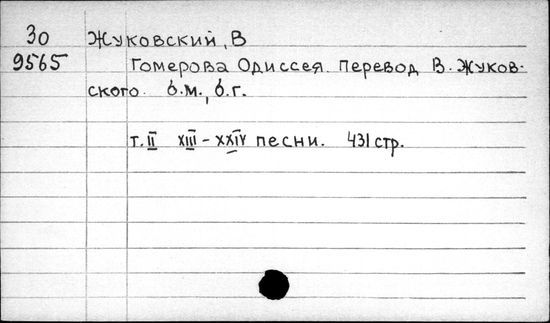 30 Жуковский, В
9565 Гомерова Одиссея. перевод В. Жуков-
ского. б.м., б.г.
т. II XIII – XXIV песни. 431 стр.